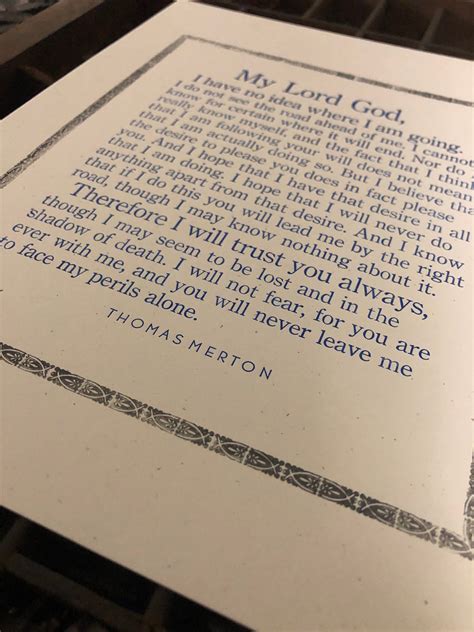 My Lord God,
I have no idea where I am going.
I do not see the road ahead of me. I cannot
know for certain where it will end. Nor do I
really know myself, and the fact that I think
that I am following your will does not mean
that I am actually doing so. But I believe the
the desire to please you does in fact please
you. And I hope that I have that desire in all
that I am doing. I hope that I will never do
anything apart from that desire. And I know
that if I do this you will lead me by the right
road, though I may know nothing about it.
Therefore I will trust you always,
though I may seem to be lost and in the
shadow of death. I will not fear, for you are
ever with me, and you will never leave me
to face my perils alone.
THOMAS MERTON